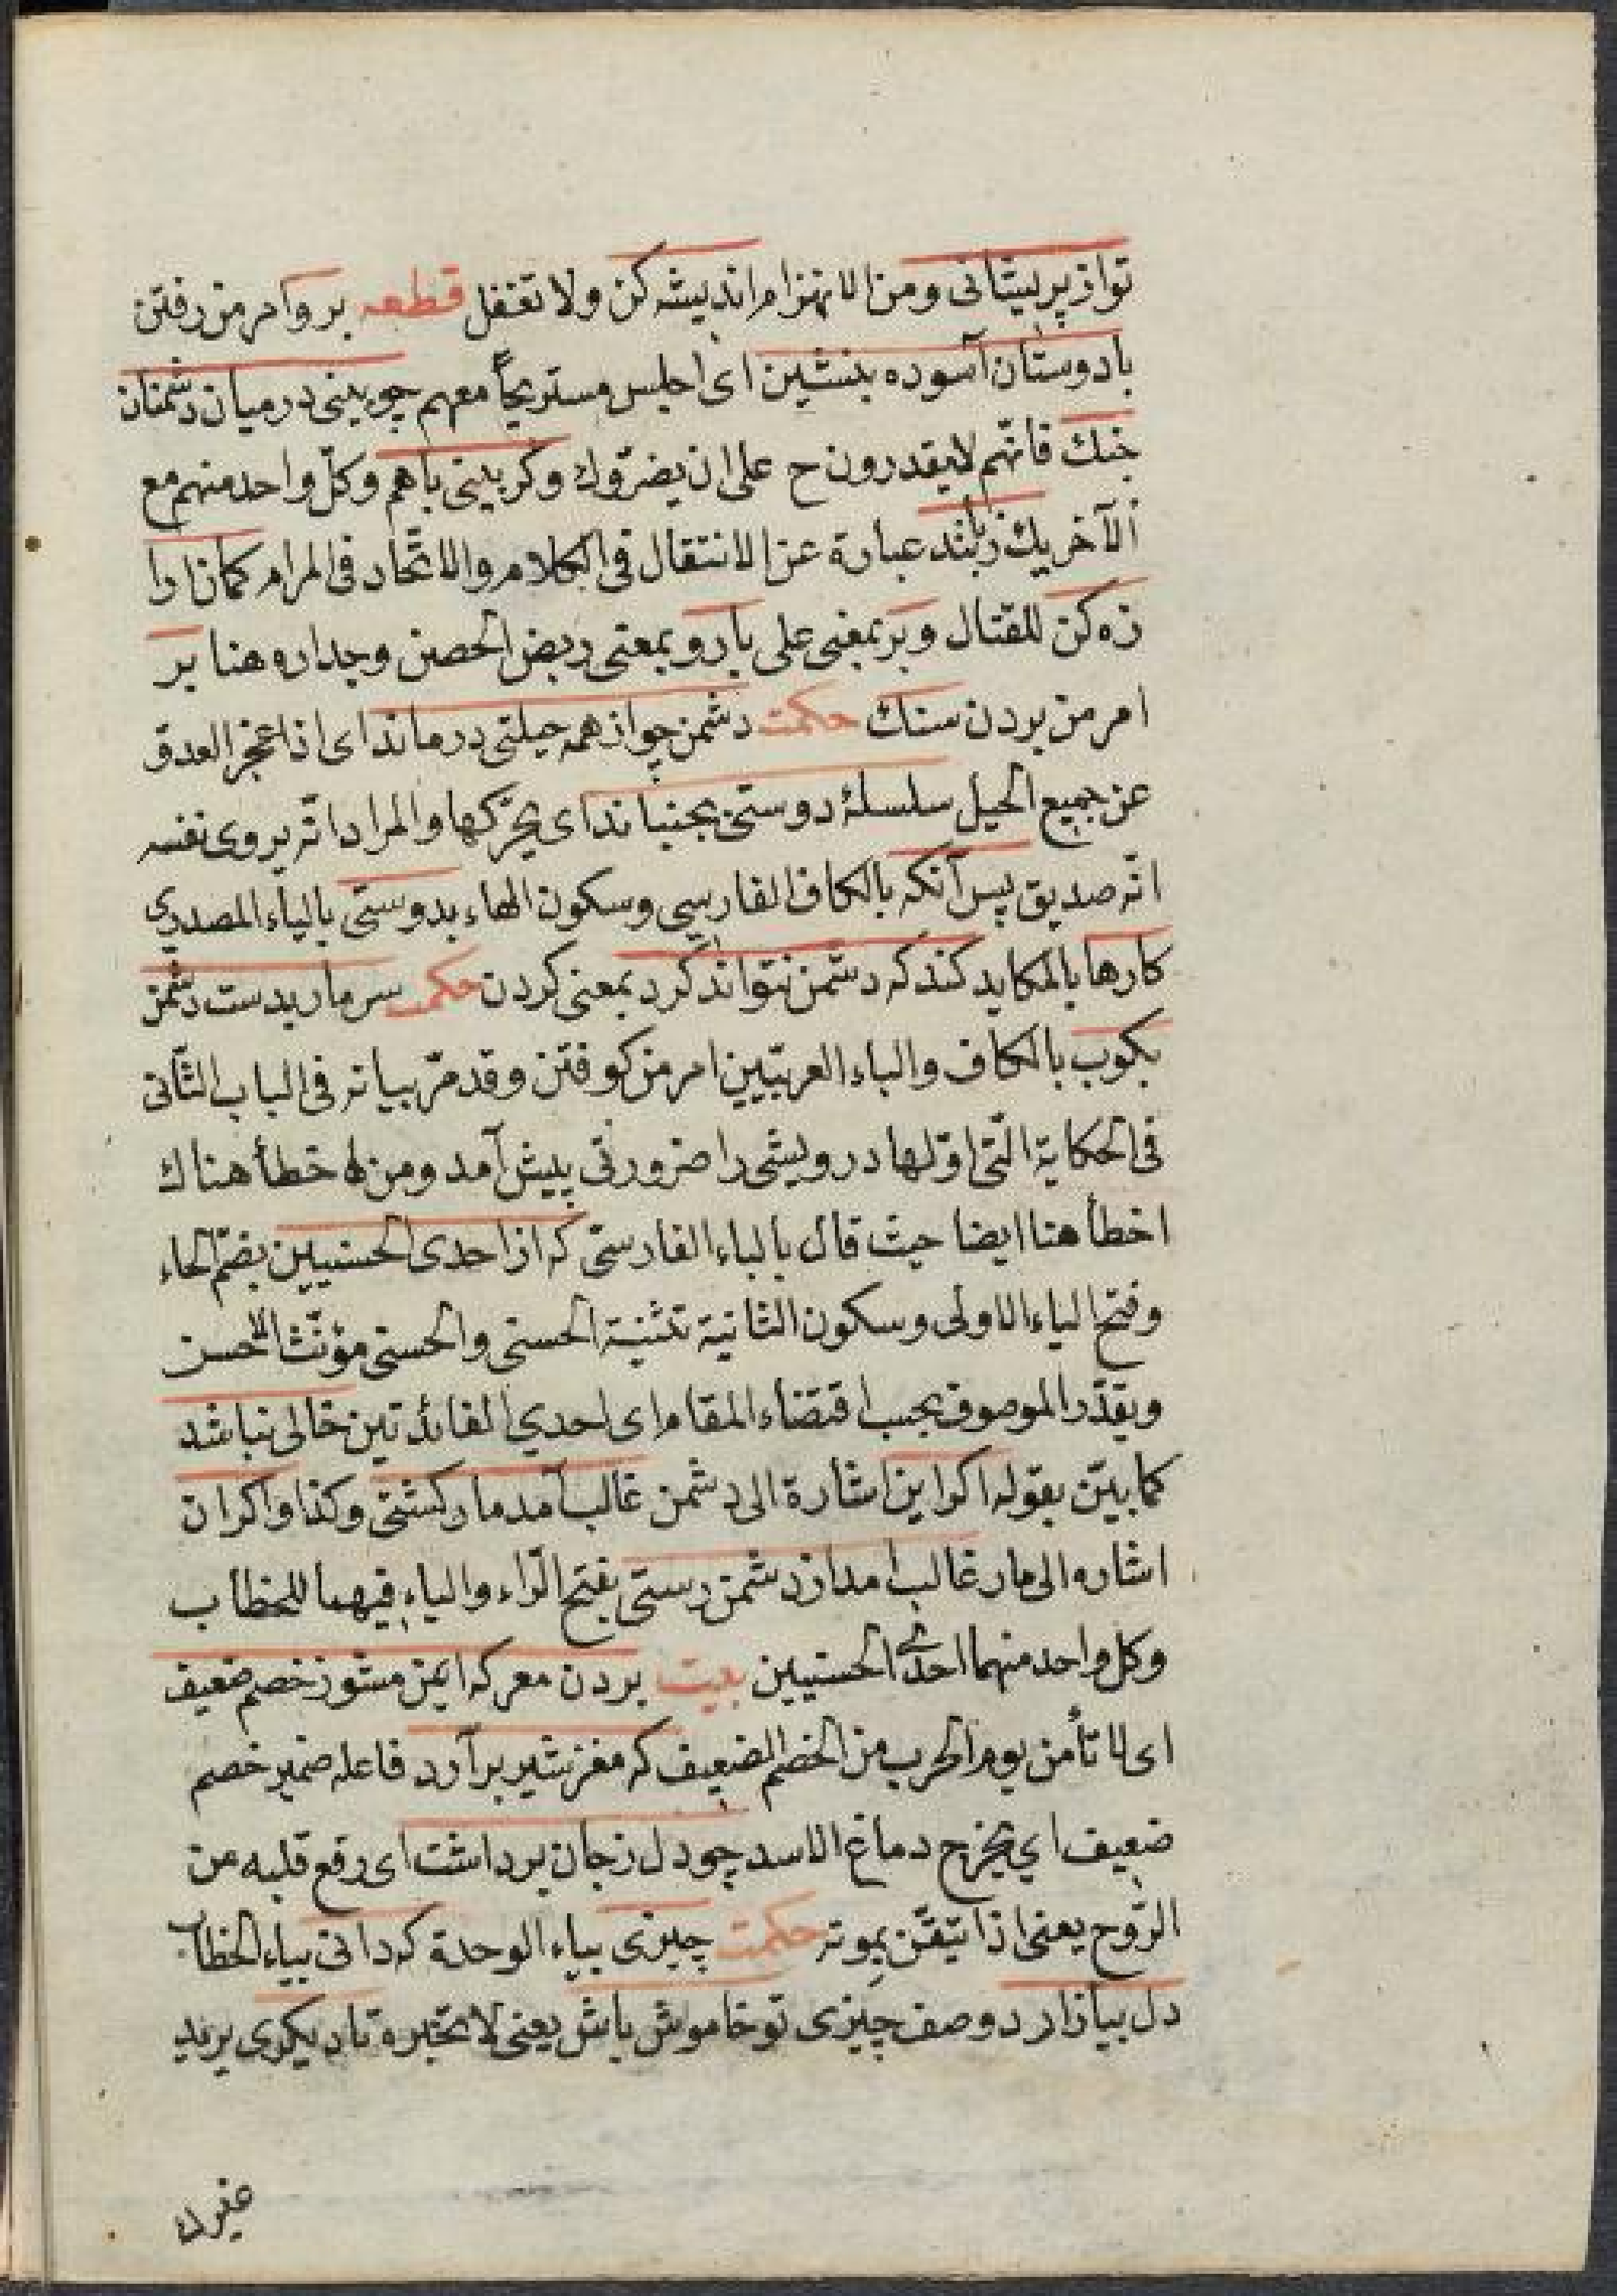 تو از پریشانی ومن الانهزام اندیشه کن ولا تغفل قطعه برو امر من رفتن
با دوستان آسوده بنشین ای اجلس مستریحاً معهم چو بینی در میان دشمنان
جنك فانّهم لا یقدرون ح علی ان یضرّوك وکر بینی باهم وکلّ واحد منهم مع
الآخر یك زبانند عبارة عن الانتقال فی الکلام والاتّحاد فی المرام کمانرا
زه کن للقتال وبَر بمعنی علی بارو بمعنی ربض الحصن وجداره هنا بر
امر من بردن سنك حکمت دشمن چو از همه حیلتی درماند ای اذا عجز العدوّ
عن جمیع الحیل سلسلهٔ دوستی بجنباند ای یحرّکها والمراد انّه یروی نفسه
انّه صدیق پس آنکه بالکاف الفارسی وسکون الهاء بدوستی بالیاء المصدری
کارها بالمکاید کند که دشمن نتواند کرد بمعنی کردن حکمت سر مار بدست دشمن
بکوب بالکاف والباء العربیّین امر من کوفتن وقد مرّ بیانه فی الباب الثّانی
فی الحکایة الّتی اوّلها درویشی را ضرورتی پیش آمد ومن له خطأ هناك
اخطأ هنا ایضا حیث قال بالباء الفارسیّ که از احدی الحسنیین بضمّ الحاء
وفتح الیاء الاولی وسکون الثانیة تثنیة الحسنی والحسنی مؤنّث الاحسن
ویقدّر الموصوف بحسب اقتضاء المقام ای احدی الفائدتین خالی نباشد
کما بیّن بقوله اکر این اشارة الی دشمن غالب آمد مار کشتی وکذا واکر ان
اشاره الی مار غالب امد از دشمن رستی بفتح الرّاء والیاء فیهما للخطاب
وکل واحد منهما احدی الحسنیین بیت بردن معرکه ایمن مشو ز خصم ضعیف
ای لا تأمن یوم الحرب من الخصم الضعیف که مغز شیر برآرد فاعله ضمیر خصم
ضعیف ای یخرج دماغ الاسد چو دل ز جان برداشت ای رفع قلبه من
الرّوح یعنی اذا تیقّن بموته حکمت چیزی بیاء الوحدة که دانی بیاء الخطاب
دل بیازارد وصف چیزی تو خاموش باش یعنی لا تخبره تا دیکری یرید
غیرك